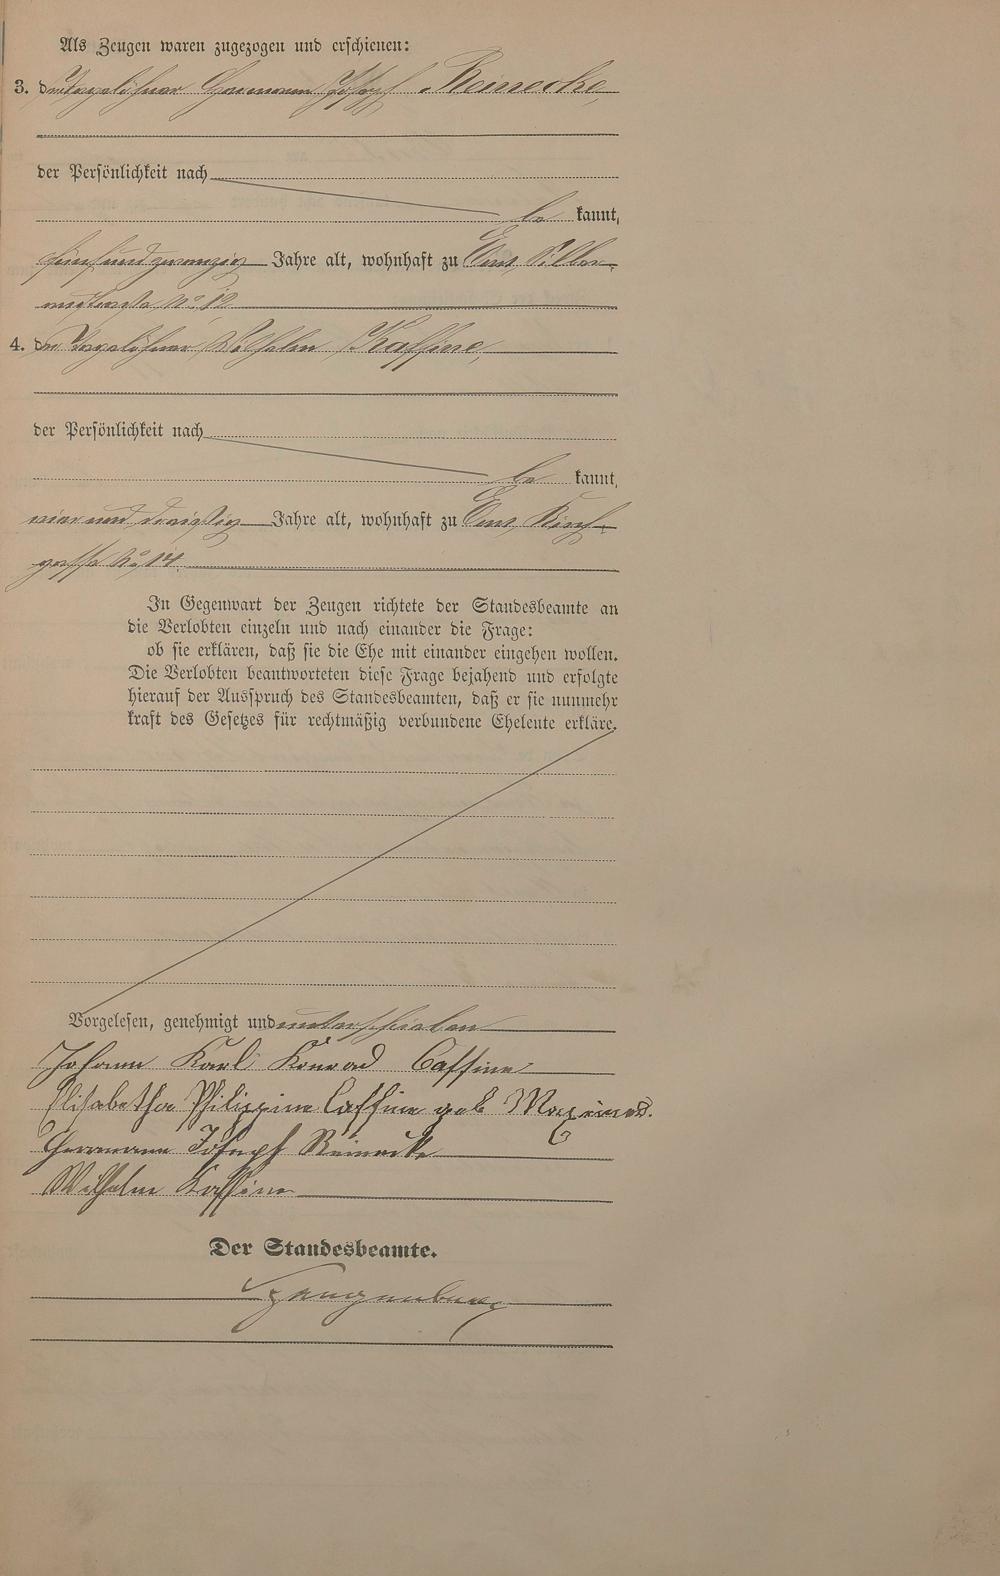 Als Zeugen waren zugezogen und erschienen:
3. der Tagelöhner Hermann Joseph Reinecke,
der Persönlichkeit nach
be kannt,
fünfundzwanzig Jahre alt, wohnhaft zu Ems, Siller-
No 12
4. der Tagelöhner Wilhelm Kaffine,
der Persönlichkeit nach
be kannt,
vierunddreißig Jahre alt, wohnhaft zu Ems, Kirch-
gasse No 14.
In Gegenwart der Zeugen richtete der Standesbeamte an
die Verlobten einzeln und nach einander die Frage:
ob sie erklären, daß sie die Ehe mit einander eingehen wollen.
Die Verlobten beantworteten diese Frage bejahend und erfolgte
hierauf der Ausspruch des Standesbeamten, daß er sie nunmehr
kraft des Gesetzes für rechtmäßig verbundene Eheleute erkläre.
Vorgelesen, genehmigt und unterschrieben
Johann Karl Konrad Caffine
Elisabetha Philippine Caffine geb Maxeiner.
Hermann Joseph Reinecke
Wilhelm Kaffine
Der Standesbeamte.